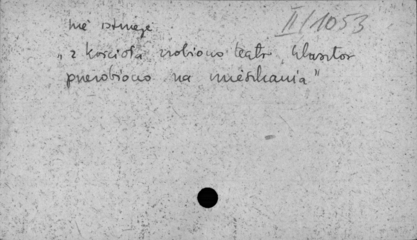 nie istnieje
II/1053
„z kościoła zrobiono teatr klasztor
przerobiono na mieszkania”